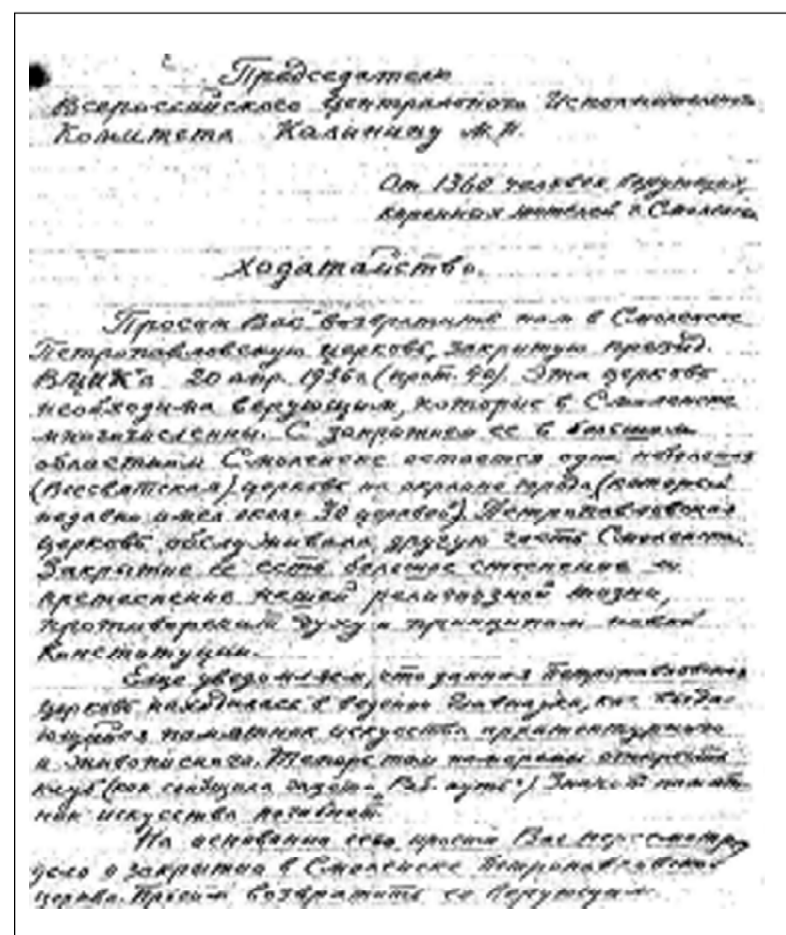 Председателю
Всероссийского Центрального Исполнительн.
Комитета Калинину М.И.
От 1360 человек верующих,
коренных жителей г. Смоленска
Ходатайство.
Просим Вас возвратить нам в Смоленске
Петропавловскую церковь, закрытую презид.
ВЦИК'а 20 апр. 1936г (прот. 40). Эта церковь
необходима верующим, которые в Смоленске
многочисленны. С закрытием ее в большом
областном Смоленске остается одна
(Всесвятская) церковь на окраине города (который
недавно имел около 30 церквей). Петропавловская
церковь обслуживала другую часть Смоленска.
Закрытие ее есть большое стеснение и
притеснение нашей религиозной жизни,
противоречит духу и принципам новой
Конституции.
Еще уведомляем, что данная Петропавловская
церковь находилась в ведении Главнауки, как выдаю-
щийся памятник искусства архитектурного
и живописного. Теперь там
клуб (как сообщала газета „Раб. путь“) Значит памят-
ник искусства погибнет.
На основании сего просим Вас пересмотр.
дело о закрытии в Смоленске Петропавловской
церкви. Просим возвратить ее верующим.